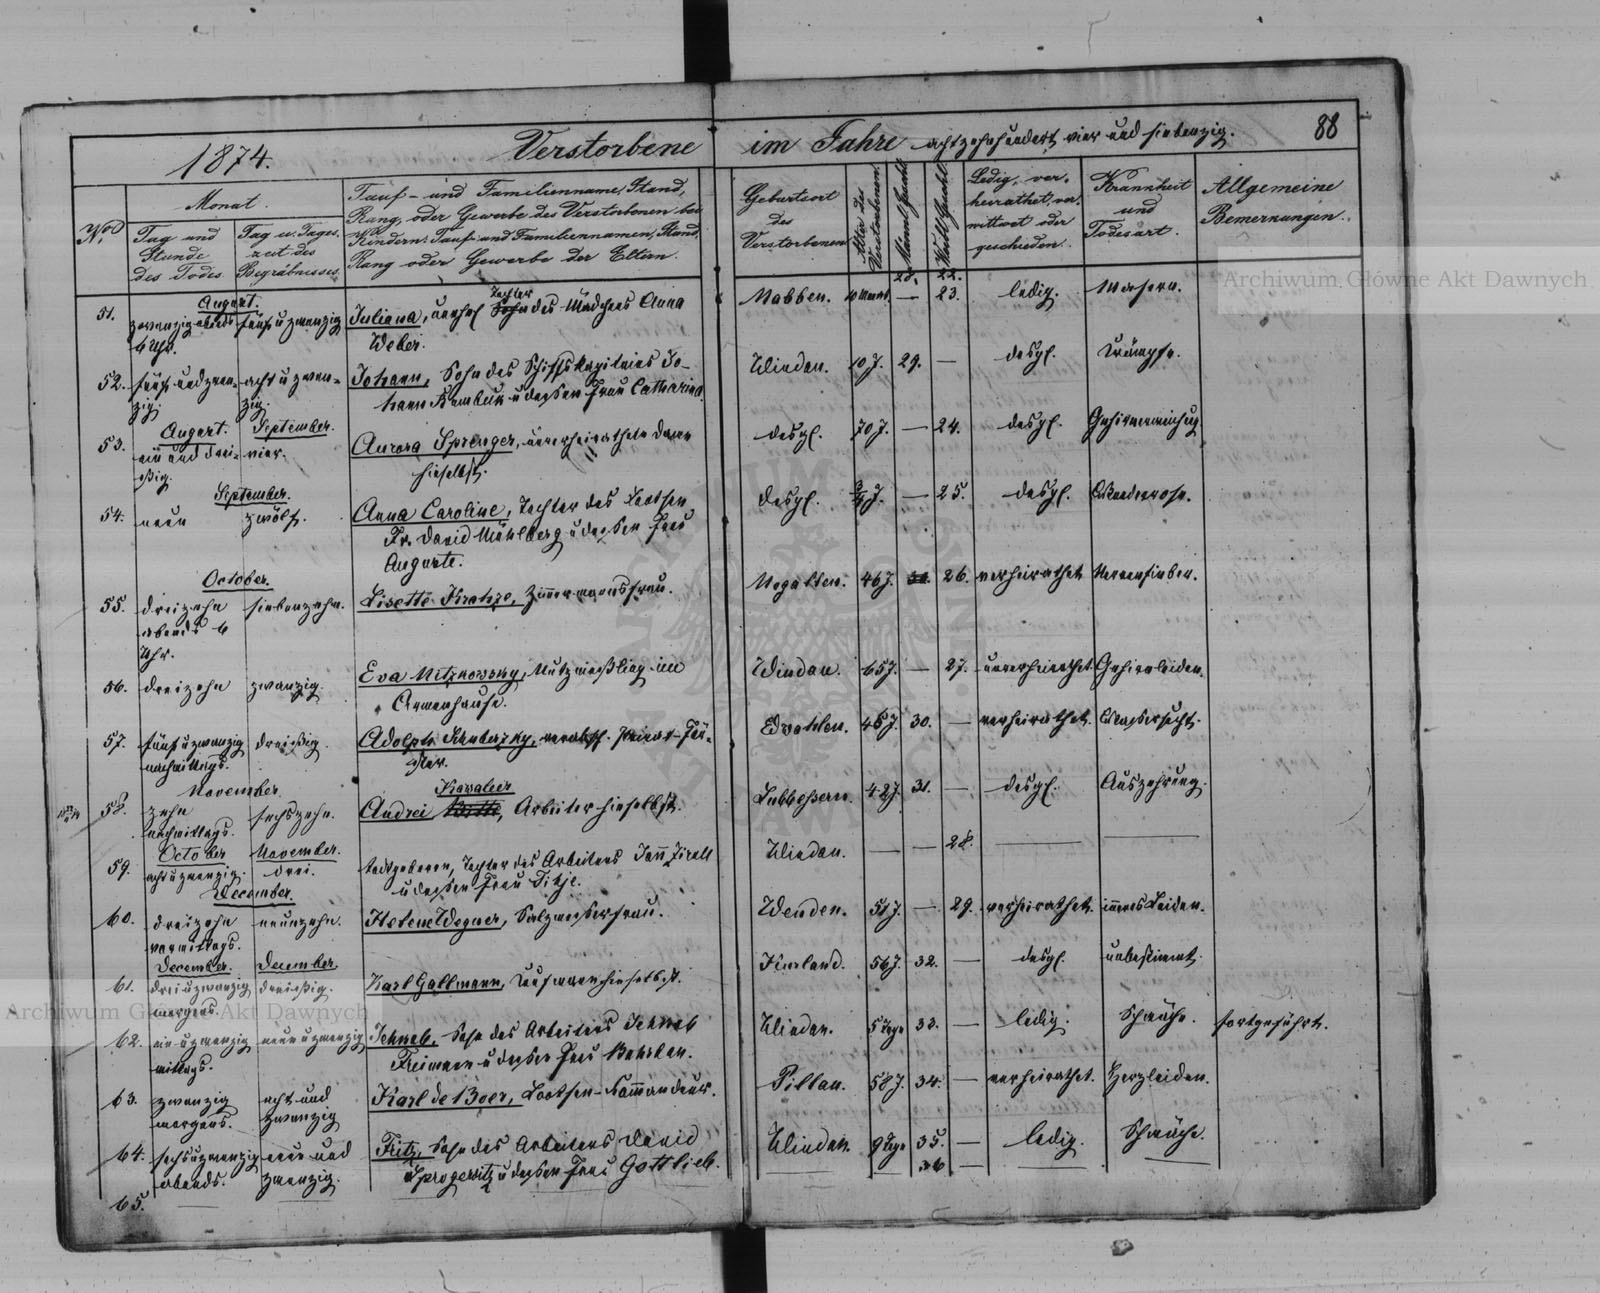 1874.
Verstorbene im Jahre achtzehnhundert vier und siebenzig.
88
No.
Monat.
Tag und Stunde des Todes
Tag u. Tageszeit des Begräbnisses.
Tauf- und Familienname, Stand,
Rang, oder Gewerbe des Verstorbenen bei
Kindern: Tauf- und Familiennamen, Stand,
Rang oder Gewerbe der Eltern.
Geburtsort des Verstorbenen
Alter des Verstorbenen.
Männl. Geschl.
Weibl. Geschl.
Ledig, verheirathet, verwittwet oder geschieden.
Krankheit und Todesart.
Allgemeine Bemerkungen.
28. 22.
August.
51. zwanzig abends fünf u zwanzig Juliana, unehel Tochter des Mädchens Anna Mabben. 10 Monat. — 23. ledig. Masern.
6 Uhr. Weber.
52. fünf und zwanzig. acht u zwanzig. Johann, Sohn des Schiffskapitains Johann u dessen Frau Catharina. Windau. 10 J. 29. — desgl. Krämpfe.
August. September.
53. ein und dreißig. vier. Aurora Sprenger, unverheirathete Dame hieselbst. desgl. 70 J. — 24. desgl. Gehirnerweichung
September.
54. neun zwölf. Anna Caroline, Tochter des Lootsen desgl. J. — 25. desgl.
Fr. David Mühlberg u dessen Frau
Auguste.
October.
55. dreizehn abends 6 Uhr. siebenzehn. Lisette Krahze, Zimmermannsfrau. Nogallen. 46 J. 26. verheirathet Nervenfieber.
56. dreizehn zwanzig. Eva Mitzkovsky, im Armenhause. Windau. 65 J. — 27. unverheirathet Gehirnleiden.
57. fünf u zwanzig nachmittags. dreißig. Adolph verabsch. Privat-Förster. Edwahlen. 45 J. 30. — verheirathet. Wassersucht.
November.
58. zehn nachmittags. sechszehn. Andrei Kavalier, Arbeiter hieselbst. 42 J. 31. — desgl. Auszehrung.
October November.
59. acht u zwanzig. drei. todtgeboren, Tochter des Arbeiters Jann u dessen Frau Windau. — — 28. — —
December.
60. dreizehn vormittags. neunzehn. Helene Wegner, Salzmesserfrau. Wenden. J. — 29. verheirathet. inneres Leiden.
December. December.
61. drei u zwanzig morgens. dreißig. Karl Gallmann, Kaufmann hieselbst. Kurland. 56 J. 32. — desgl. unbestimmt.
62. ein u zwanzig mittags. neun u zwanzig Jehkab, Sohn des Arbeiters Jehkab Windau. 5 Tage 33. — ledig. Schwäche. fortgeführt.
Freimann u dessen Frau
63. zwanzig morgens. acht und zwanzig Karl de Boer, Lootsen-Kommandeur. Pillau. 58 J. 34. — verheirathet. Herzleiden.
64. sechs u zwanzig abends. neun und zwanzig. Fritz, Sohn des Arbeiters David Windau. 9 Tage 35. — ledig. Schwäche.
u dessen Frau Gottlieb.
65. — — — 36 — — —
Archiwum Główne Akt Dawnych
Archiwum Główne Akt Dawnych